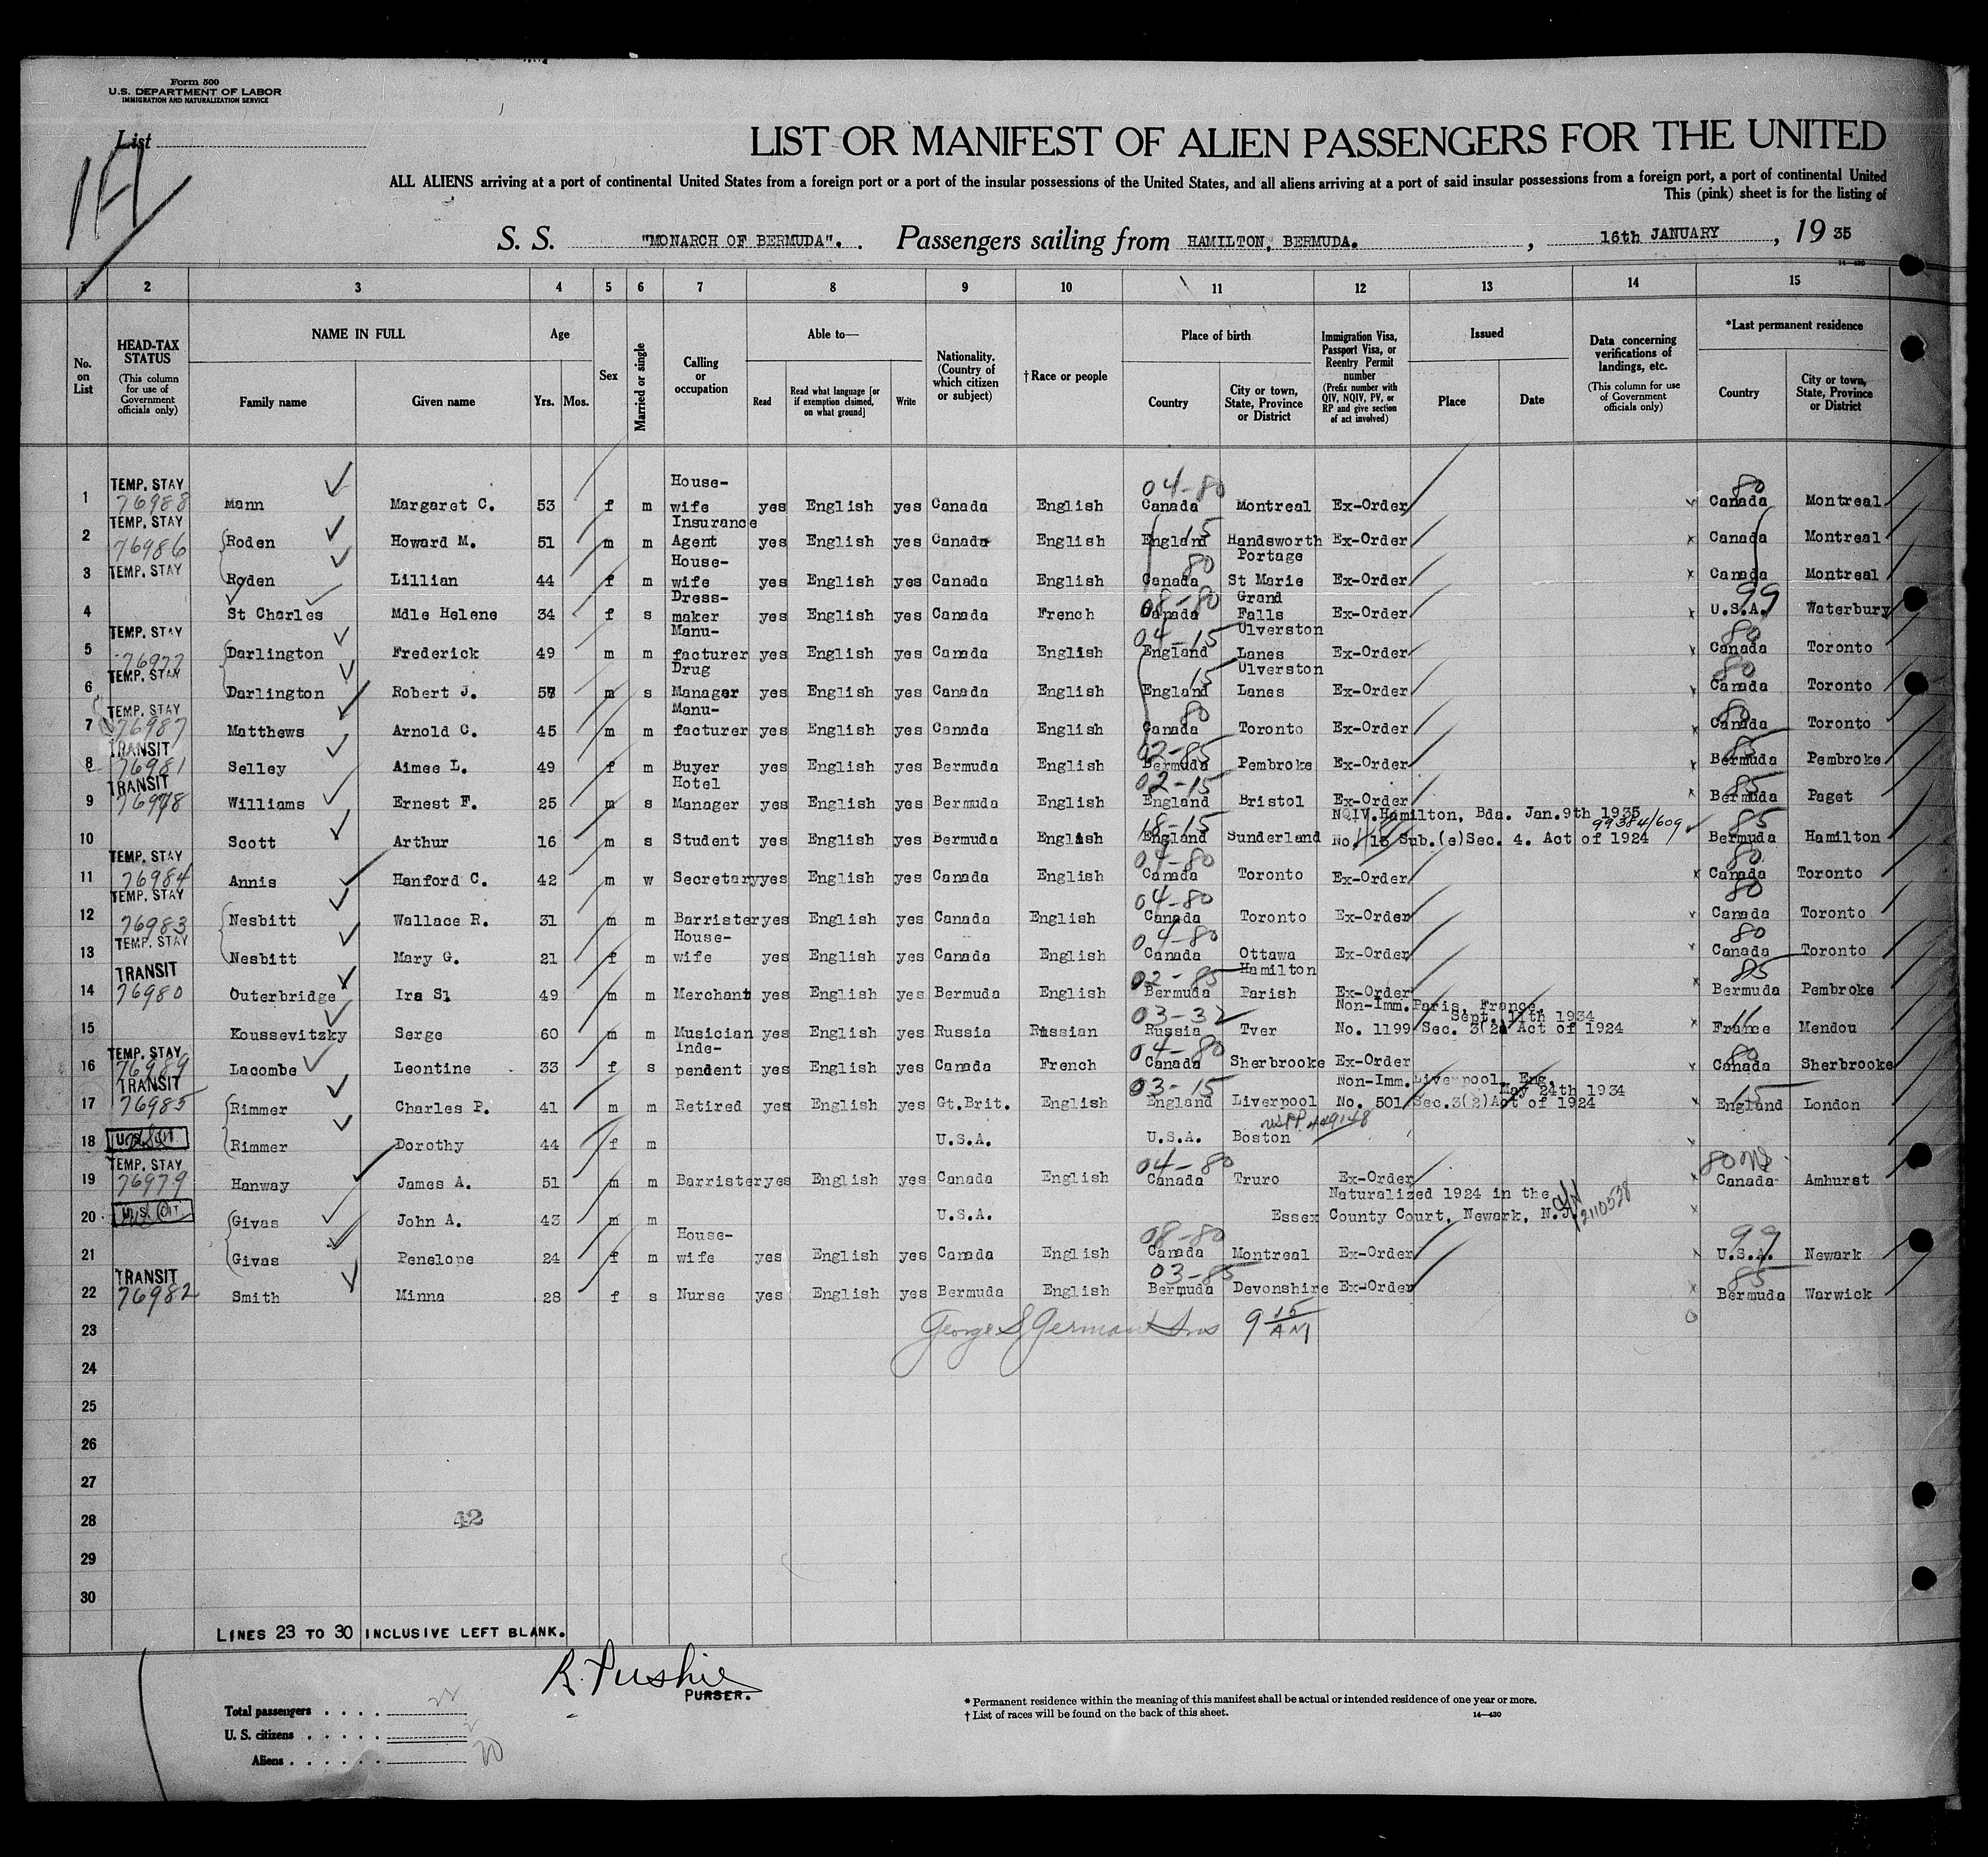 Form 500
U.S. DEPARTMENT OF LABOR
IMMIGRATION AND NATURALIZATION SERVICE
List
LIST OR MANIFEST OF ALIEN PASSENGERS FOR THE UNITED
ALL ALIENS arriving at a port of continental United States from a foreign port or a port of the insular possessions of the United States, and all aliens arriving at a port of said insular possessions from a foreign port, a port of continental United
This (pink) sheet is for the listing of
S. S. "MONARCH OF BERMUDA". Passengers sailing from HAMILTON, BERMUDA. , 16th JANUARY , 19 35
14—430
2 3 4 5 6 7 8 9 10 11 12 13 14 15
No. on List
HEAD-TAX STATUS (This column for use of Government officials only)
NAME IN FULL Family name Given name
Age Yrs. Mos.
Sex
Married or single
Calling or occupation
Able to— Read Read what language [or if exemption claimed, on what ground] Write
Nationality. (Country of which citizen or subject)
† Race or people
Place of birth Country City or town, State, Province or District
Immigration Visa, Passport Visa, or Reentry Permit number (Prefix number with QIV, NQIV, PV, or RP and give section of act involved)
Issued Place Date
Data concerning verifications of landings, etc. (This column for use of Government officials only)
*Last permanent residence Country City or town, State, Province or District
1 TEMP. STAY 76988 Mann Margaret C. 53 f m House-wife yes English yes Canada English 04-80 Canada Montreal Ex-Order 80 Canada Montreal
2 TEMP. STAY 76986 Roden Howard M. 51 m m Insurance Agent yes English yes Canada English 15 England Handsworth Ex-Order Canada Montreal
3 TEMP. STAY Roden Lillian 44 f m House-wife yes English yes Canada English 80 Canada Portage St Marie Ex-Order Canada Montreal
4 St Charles Mdle Helene 34 f s Dress-maker yes English yes Canada French 08-80 Canada Grand Falls Ex-Order 99 U.S.A. Waterbury
5 TEMP. STAY 76977 Darlington Frederick 49 m m Manu-facturer yes English yes Canada English 04-15 England Ulverston Lanes Ex-Order 80 Canada Toronto
6 TEMP. STAY Darlington Robert J. m s Drug Manager yes English yes Canada English 15 England Ulverston Lanes Ex-Order 80 Canada Toronto
7 TEMP. STAY 76987 Matthews Arnold C. 45 m m Manu-facturer yes English yes Canada English 80 Canada Toronto Ex-Order 80 Canada Toronto
8 TRANSIT 76981 Selley Aimee L. 49 f m Buyer yes English yes Bermuda English 02-85 Bermuda Pembroke Ex-Order 85 Bermuda Pembroke
9 TRANSIT 76978 Williams Ernest F. 25 m s Hotel Manager yes English yes Bermuda English 02-15 England Bristol Ex-Order 85 Bermuda Paget
10 Scott Arthur 16 m s Student yes English yes Bermuda English 18-15 England Sunderland NQIV.Hamilton, Bda. Jan.9th 1935 No. 15 Sub.(e)Sec. 4. Act of 1924 99384/609 85 Bermuda Hamilton
11 TEMP. STAY 76984 Annis Hanford C. 42 m w Secretary yes English yes Canada English 04-80 Canada Toronto Ex-Order 80 Canada Toronto
12 TEMP. STAY 76983 Nesbitt Wallace R. 31 m m Barrister yes English yes Canada English 04-80 Canada Toronto Ex-Order 80 Canada Toronto
13 TEMP. STAY Nesbitt Mary G. 21 f m House-wife yes English yes Canada English 04-80 Canada Ottawa Ex-Order 80 Canada Toronto
14 TRANSIT 76980 Outerbridge Ira S. 49 m m Merchant yes English yes Bermuda English 02-85 Bermuda Hamilton Parish Ex-Order 85 Bermuda Pembroke
15 Koussevitzky Serge 60 m m Musician yes English yes Russia Russian 03-32 Russia Tver Non-Imm. Paris, France, Sept. 11th 1934 No. 1199 Sec. 3(2) Act of 1924 11 France Mendou
16 TEMP. STAY 76989 Lacombe Leontine 33 f s Inde-pendent yes English yes Canada French 04-80 Canada Sherbrooke Ex-Order 80 Canada Sherbrooke
17 TRANSIT 76985 Rimmer Charles P. 41 m m Retired yes English yes Gt.Brit. English 03-15 England Liverpool Non-Imm. Liverpool, Eng. May 24th 1934 No. 501 Sec.3(2)Act of 1924 15 England London
18 U.S. CIT. Rimmer Dorothy 44 f m U.S.A. U.S.A. Boston USPP 449148
19 TEMP. STAY 76979 Hanway James A. 51 m m Barrister yes English yes Canada English 04-80 Canada Truro Ex-Order 80 Canada Amhurst
20 U.S. CIT. Givas John A. 43 m m U.S.A. Naturalized 1924 in the Essex County Court, Newark, N.J. 2110538
21 Givas Penelope 24 f m House-wife yes English yes Canada English 08-80 Canada Montreal Ex-Order 99 U.S.A. Newark
22 TRANSIT 76982 Smith Minna 28 f s Nurse yes English yes Bermuda English 03-85 Bermuda Devonshire Ex-Order 85 Bermuda Warwick
23 9 15 AM
24
25
26
27
28 42
29
30
LINES 23 TO 30 INCLUSIVE LEFT BLANK.
R. Pushie
PURSER.
Total passengers
U. S. citizens
Aliens 20
* Permanent residence within the meaning of this manifest shall be actual or intended residence of one year or more.
† List of races will be found on the back of this sheet. 14—430